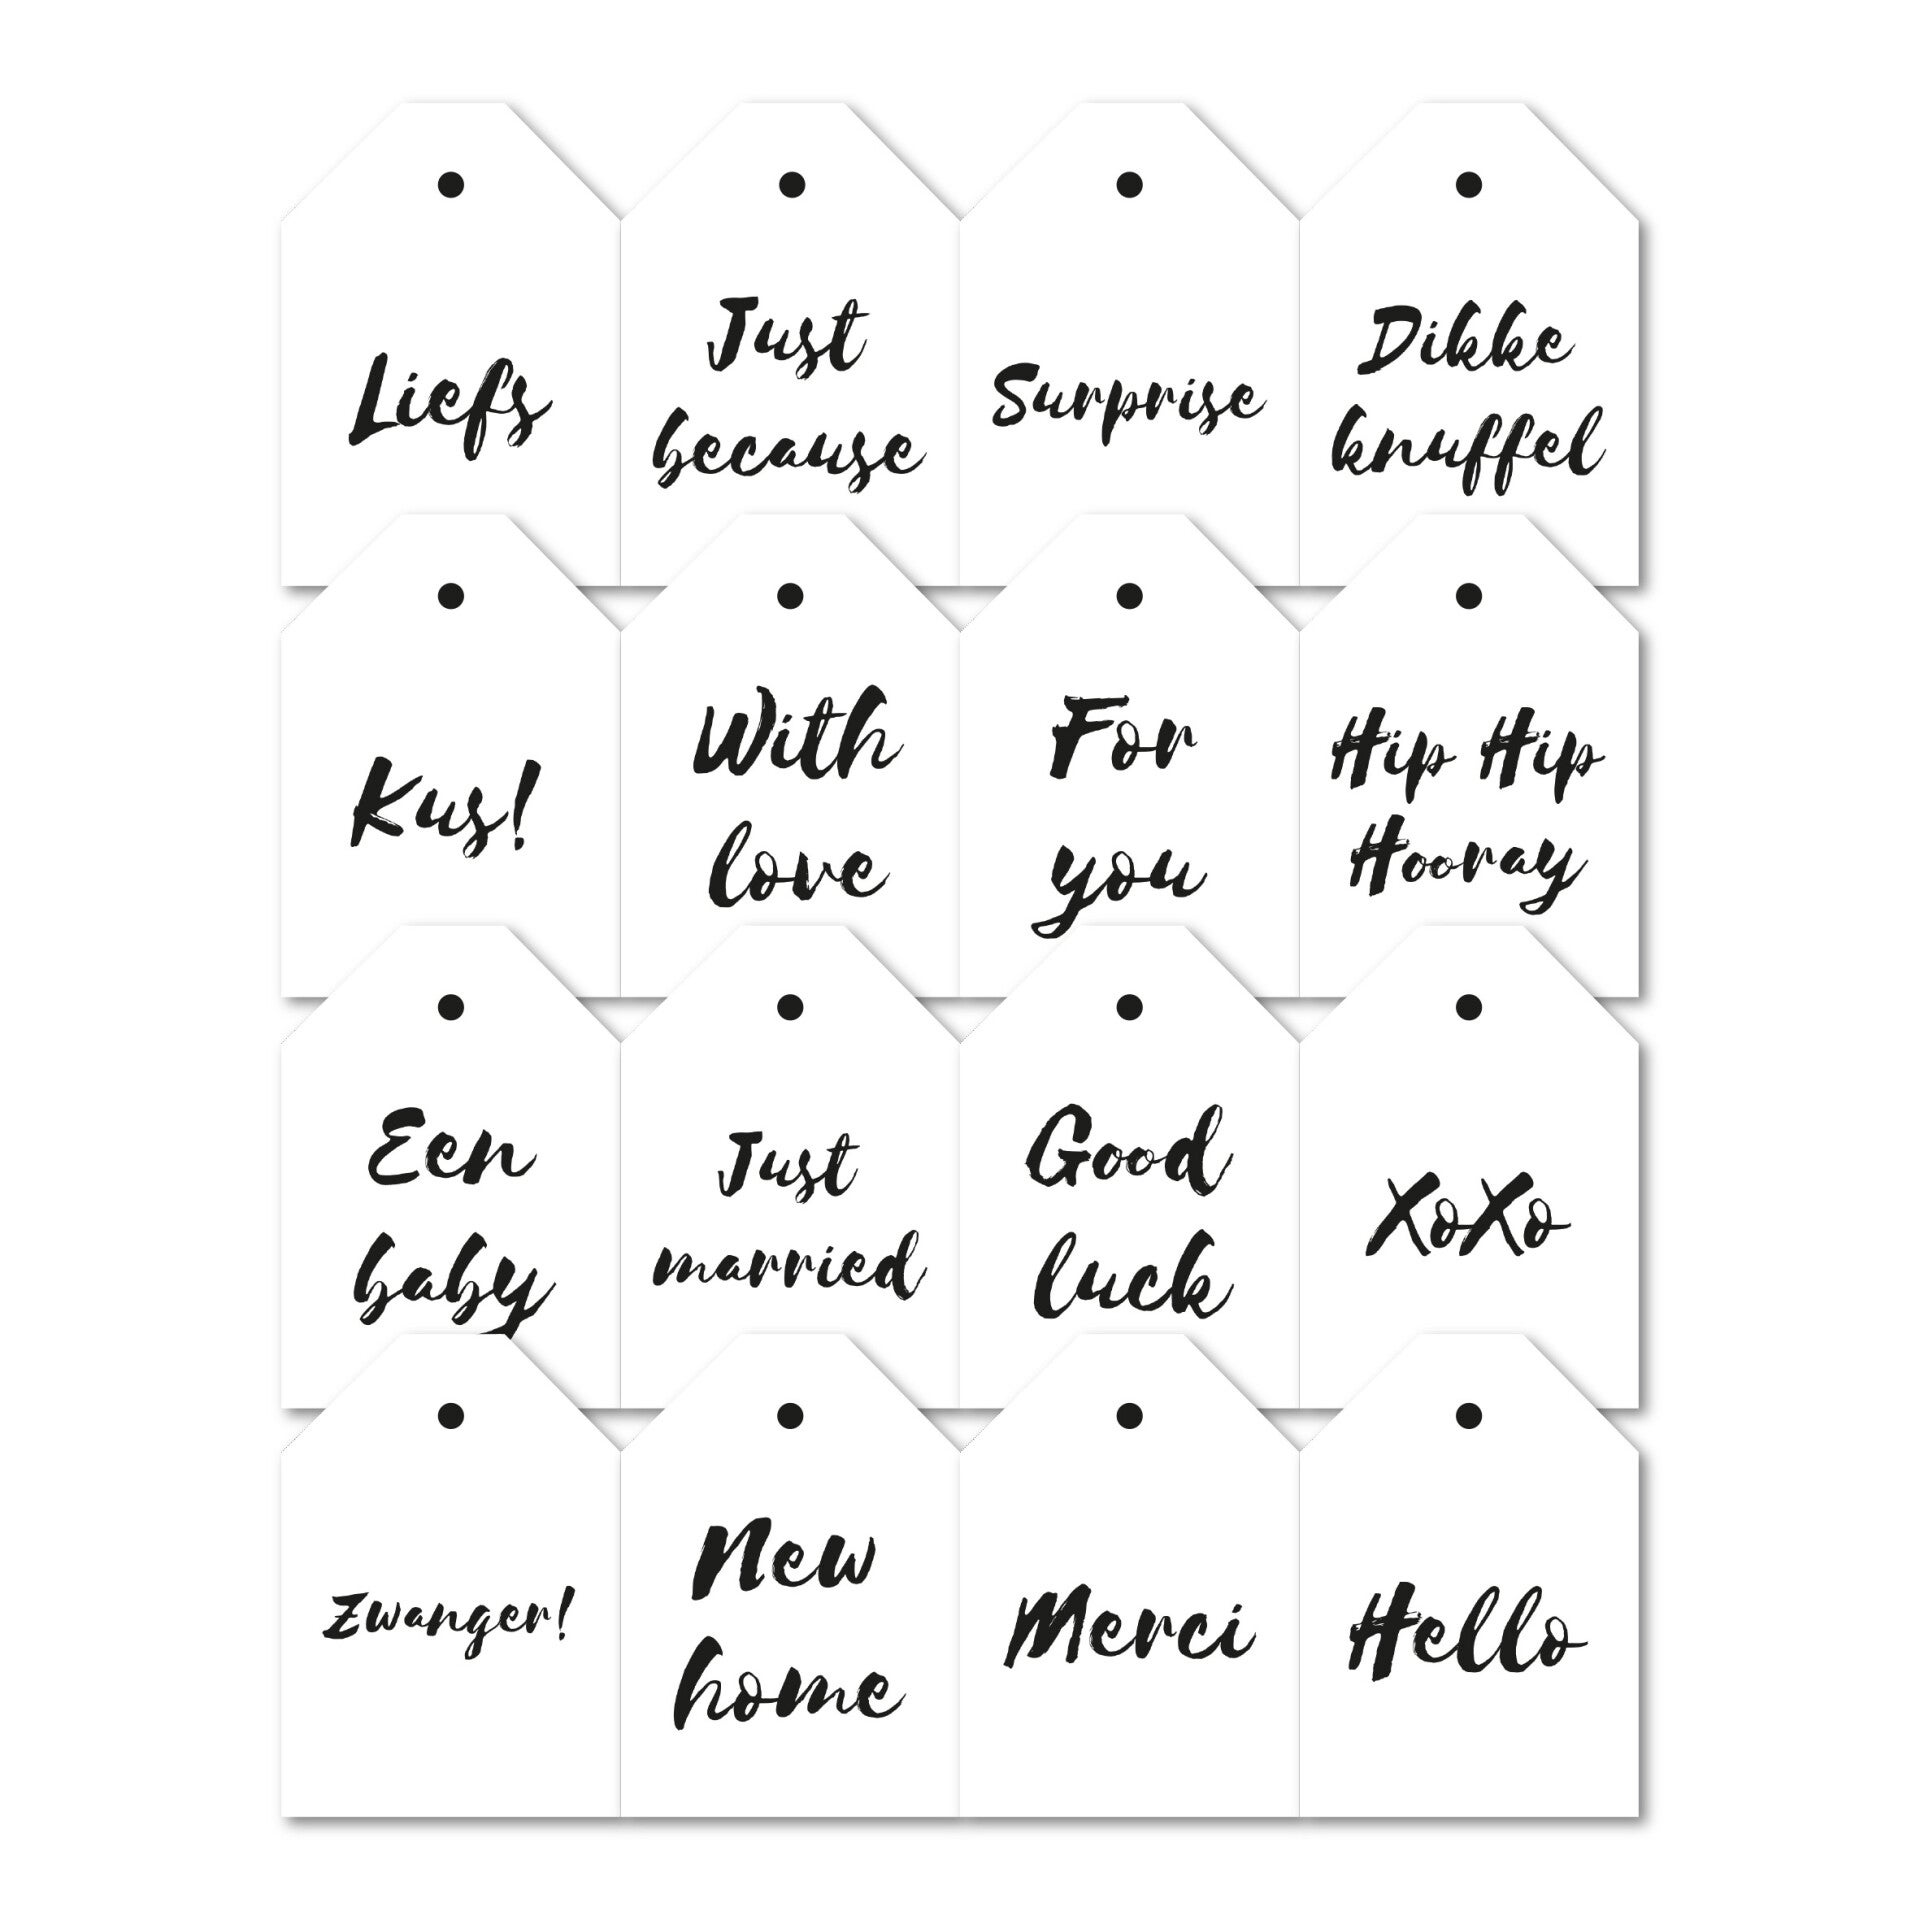 Liefs
Just
because
Surprise
Dikke
knuffel
Kus!
With
love
For
you
Hip Hip
Hooray
Een
baby
Just
married
Good
luck
XoXo
Zwanger!
New
home
Merci
Hello